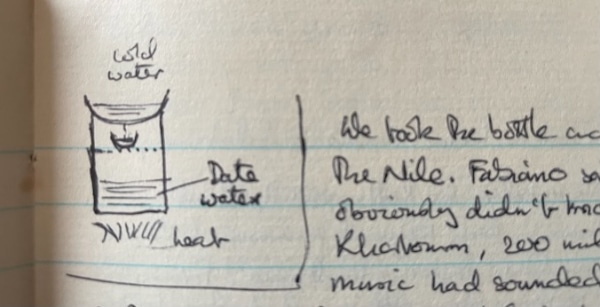 cold
water
Date
water
heat
We took the bottle
the Nile. Fabiano
obviously didn't
Khartoum, 200
music had sounded